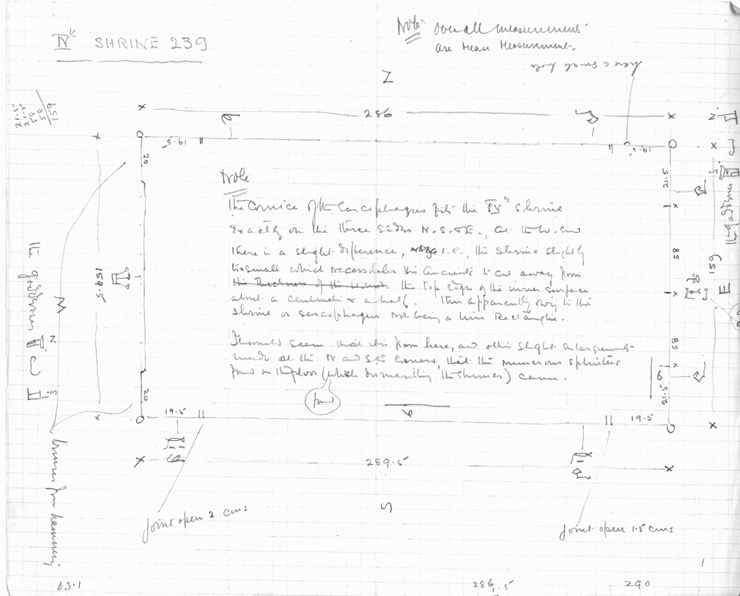 IVth SHRINE 239
Note: Overall measurements
are mean measurement.
here small hole
N
286
19.5
19.5
20
21.5
Note
The Cornice of the Sarcophagus fits the IVth Shrine
exactly on the three sides N. S. & E., at the W. end
there is a slight difference, i.e., the shrine slightly
to small which necessitates the ancients to cut away from
the top edge of the inner surface
about a centimetre & a half. This apparently owing to the
shrine or sarcophagus not being a true Rectangle.
It would seem that it is from here, and other slight enlargements
made at the N and S.E. corners, that the numerous splinters
found on the floor (when dismantling the shrines) came.
found
the goddesses
W
159.5
bruises from hammering
20
85
85
21.5
E
159
the goddesses
19.5
19.5
289.5
S
Joint open 2 cms
Joint open 1.5 cms
286.5
290